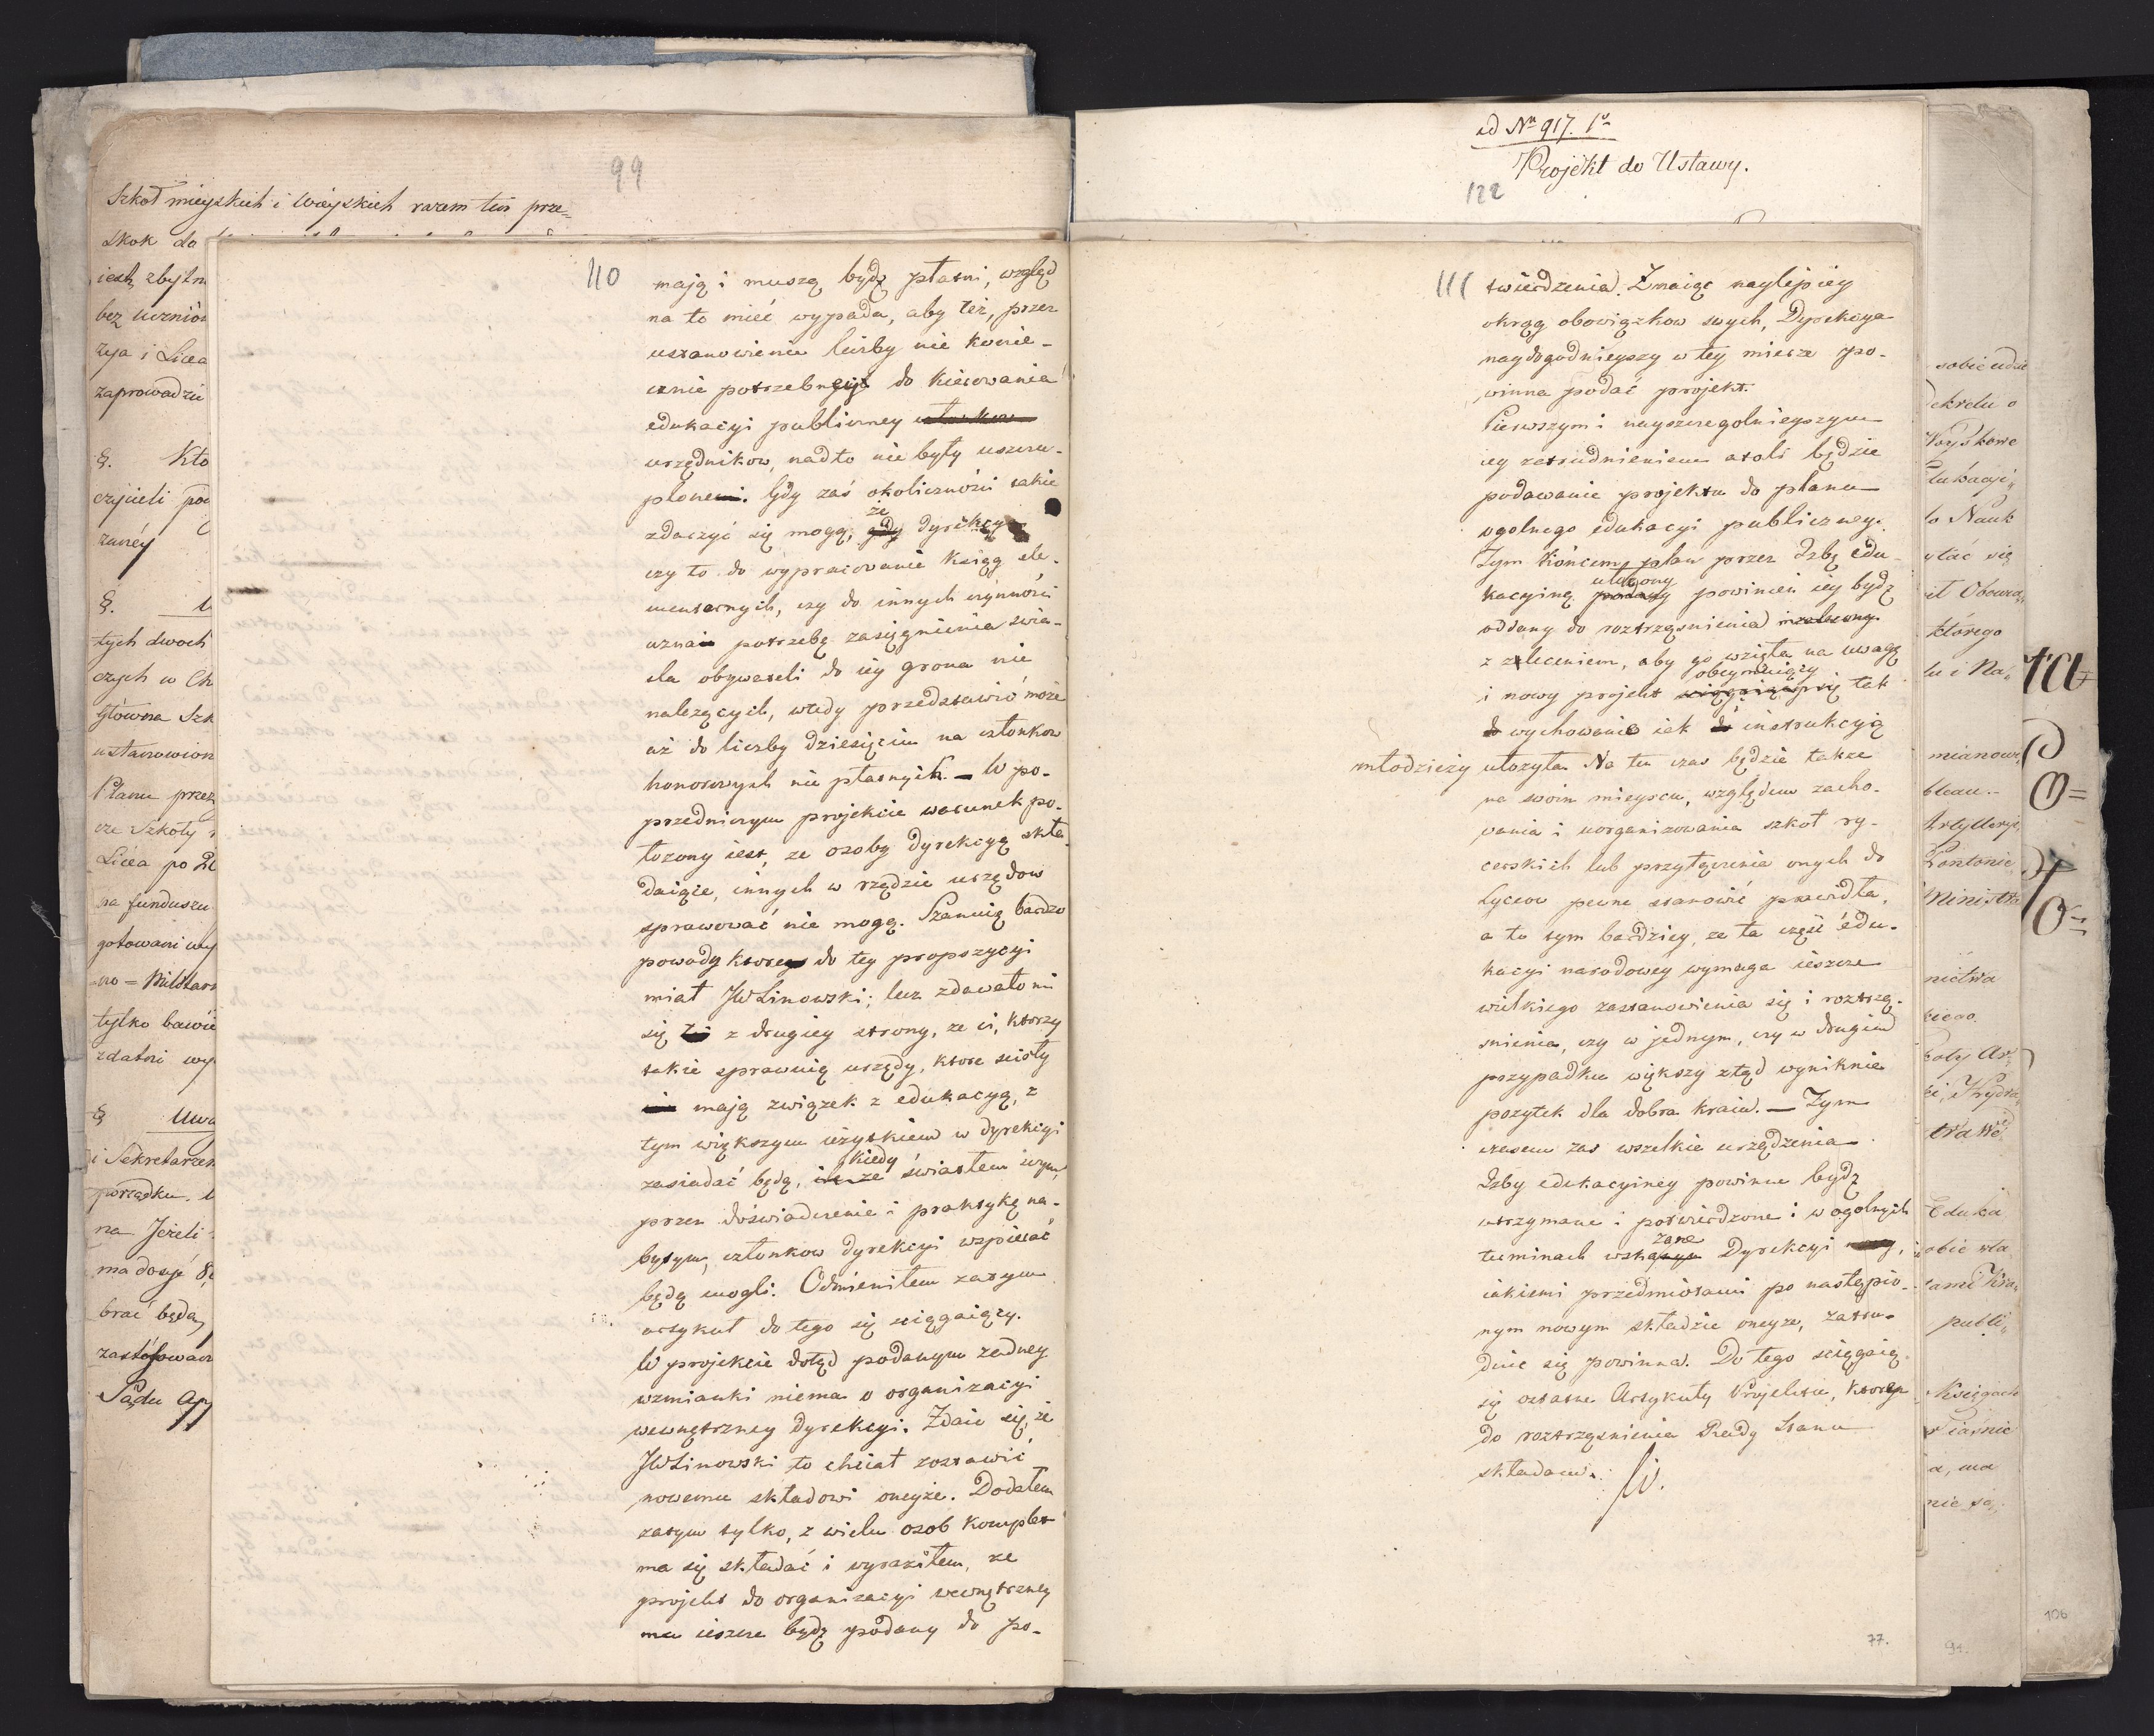 99
Szkoł mieyskich i Wieyskich razem ten prze=
skok do
iest zbytn
bez Uczniów
zya i Licea
zaprowadzie
§. Kto
czycieli po
zaney
§.
tych dwoch
czych w
Główna Szk
ustanowion
Planu przez
cze Szkoły
Licea po
na funduszu
gotowani
no = Militarn
tylko bawie
zdatni wy
§ Uwa
i Sekretarzem
porządku.
na Jeżeli
ma dosyć
brać będą,
zastosowan
Sądu Ap
110
mają i muszą bydź płatni, wzgląd
na to mieć wypada, aby też, przez
ustanowienie liczby nie konie-
cznie potrzebney do kierowania
edukacyi publiczney członkow
urzędnikow, nadto nie były uszczu-
plone. Gdy zaś okoliczności takie
że
zdarzyć się mogą, gdy dyrekcya
czy to do wypracowania ksiąg ele-
mentarnych, czy do innych czynności
uzna potrzebę zasięgnienia świa-
tła obywateli do iey grona nie
należących, wtedy przedstawić może
aż do liczby dziesięciu na członkow
honorowych nie płatnych. — W po-
przedniczym projekcie warunek po-
łożony iest, że osoby dyrekcyą skła-
daiące, innych w rządzie urzędow
sprawować nie mogą. Szanuię bardzo
powody ktore do tey propozycyi
miał JW Linowski; lecz zdawało mi
się z drugiey strony, że ci, ktorzy
takie sprawuią urzędy, ktore scisły
mają związek z edukacyą, z
tym większym użytkiem w dyrekcyi
kiedy
zasiadać będą, światłem swym,
przez doświadczenie i praktykę na-
bytym, członkow dyrekcyi wspierać
będą mogli. Odmieniłem zatym
artykuł do tego się sciągaiący.
W projekcie dotąd podanym żadney
wzmianki niema o organizacyi
wewnętrzney dyrekcyi. Zdaie się, że
JW Linowski to chciał zostawić
nowemu składowi oneyże. Dodałem
zatym tylko, z wielu osob komplet
ma się składać i wyraziłem, że
projekt do organizacyi wewnętrzney
ma ieszcze bydź podany do po-
ad Nrı 917. 1°
Projekt do Ustawy.
122
111
twierdzenia. Znaiąc naylepiey
okrąg obowiązkow swych, Dyrekcya
naydogodnieyszy w tey mierze po-
winna podać projekt.
Pierwszym i nayszczegolnieyszym
iey zatrudnieniem atoli będzie
podawanie projektu do planu
ogolnego edukacyi publiczney.
Tym końcem, plan przez Izbę edu-
ułożony
kacyiną podany powinien iey bydź
oddany do roztrząsnienia
z zaleceniem, aby go wzięła na uwagę
obeymuiący
i nowy projekt sciągaiący się tak
do wychowania iak do instrukcyią
młodzieży ułożyła Na ten czas będzie także
na swoim mieyscu, względem zacho-
wania i uorganizowania szkoł ry-
cerskich lub przyłączenia onych do
Lyceow pewne stanowić prawidła,
a to tym bardziey, że ta część edu-
kacyi narodowéy wymaga ieszcze
wielkiego zastanowienia się i roztrzą-
snienia, czy w jednym, czy w drugim
przypadku większy ztąd wyniknie
pożytek dla dobra kraiu. — Tym
czasem zaś wszelkie urządzenia
Izby edukacyiney powinne bydź
utrzymane i potwierdzone i w ogolnych
zane
terminach wskazane Dyrekcyi
iakiemi przedmiotami po nastąpio-
nym nowym składzie oneyże, zatru-
dnić się powinna. Do tego sciągaią
się ostatnie Artykuły Projektu, ktore
do roztrząsnienia Rady Stanu
składam.
77.
sobie udzie
Dekretu o
Woyskowe
Edukacyi,,
do Nauk
ytać się
it Obowią,,
którego
lu i Na,,
mianowi,,
bleau.-
Artylleryi,
Kantonie
Ministra
nictwa
kiego
koły Ar,,
Eduka
obie wła
same
publi,,
Księgach
a, ma
nie są,
91.
106